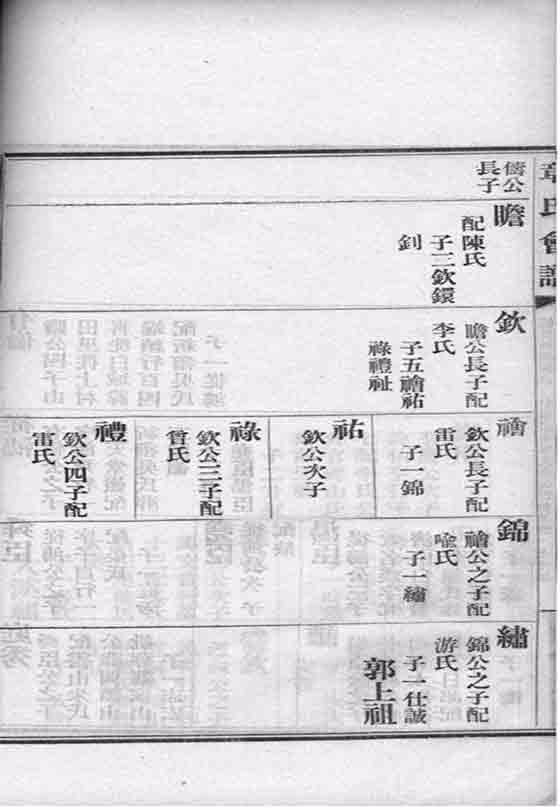 章氏會譜
儔公
長子
瞻
配陳氏
子三欽鐶
釗
欽
瞻公長子配
李氏
子五禬祐
祿禮祉
禬
欽公長子配
雷氏
子一錦
祐
欽公次子
祿
欽公三子配
曾氏
禮
欽公四子配
雷氏
錦
禬公之子配
喩氏
子一繡
繡
錦公之子配
游氏
子一仕誠
郭上祖